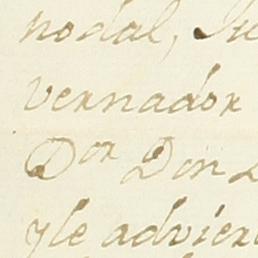 nodal,
vernador
Dor Don
yle advier